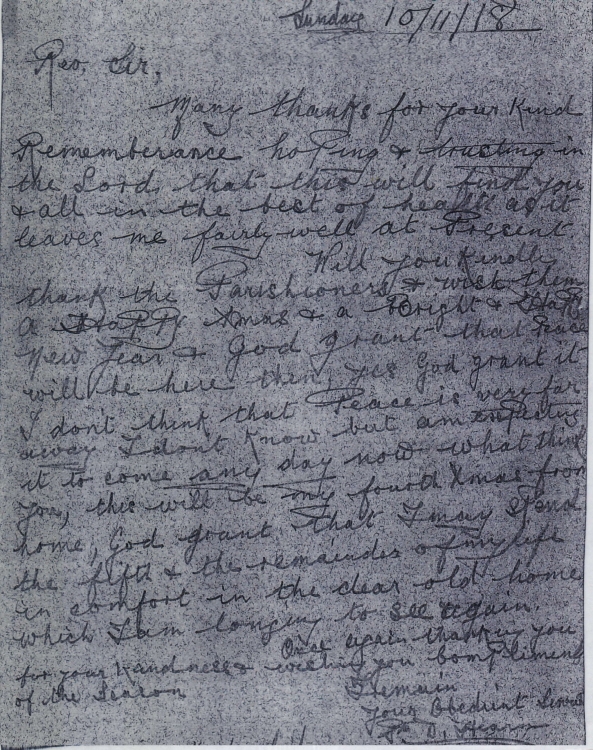 Sunday 10/11/18
Rev. Sir,
Many thanks for your Kind
Rememberance hoping & trusting in
the Lord that this will find you
& all in the best of health as it
leaves me fairly well at Present
Will you Kindly
thank the Parishioners & wish them
a Happy Xmas & a Bright & Happy
New Year & God grant that Peace
will be here then, yes God grant it
I don't think that Peace is very far
away I dont Know but am expecting
it to come any day now what think
you, this will be my fourth Xmas from
home, God grant that I may spend
the fifth & the remainder of my life
in comfort in the dear old home
which I am longing to see again.
Once again thanking you
for your Kindness & wishing you Compliments
of the Season
I remain
your Obedient Servant